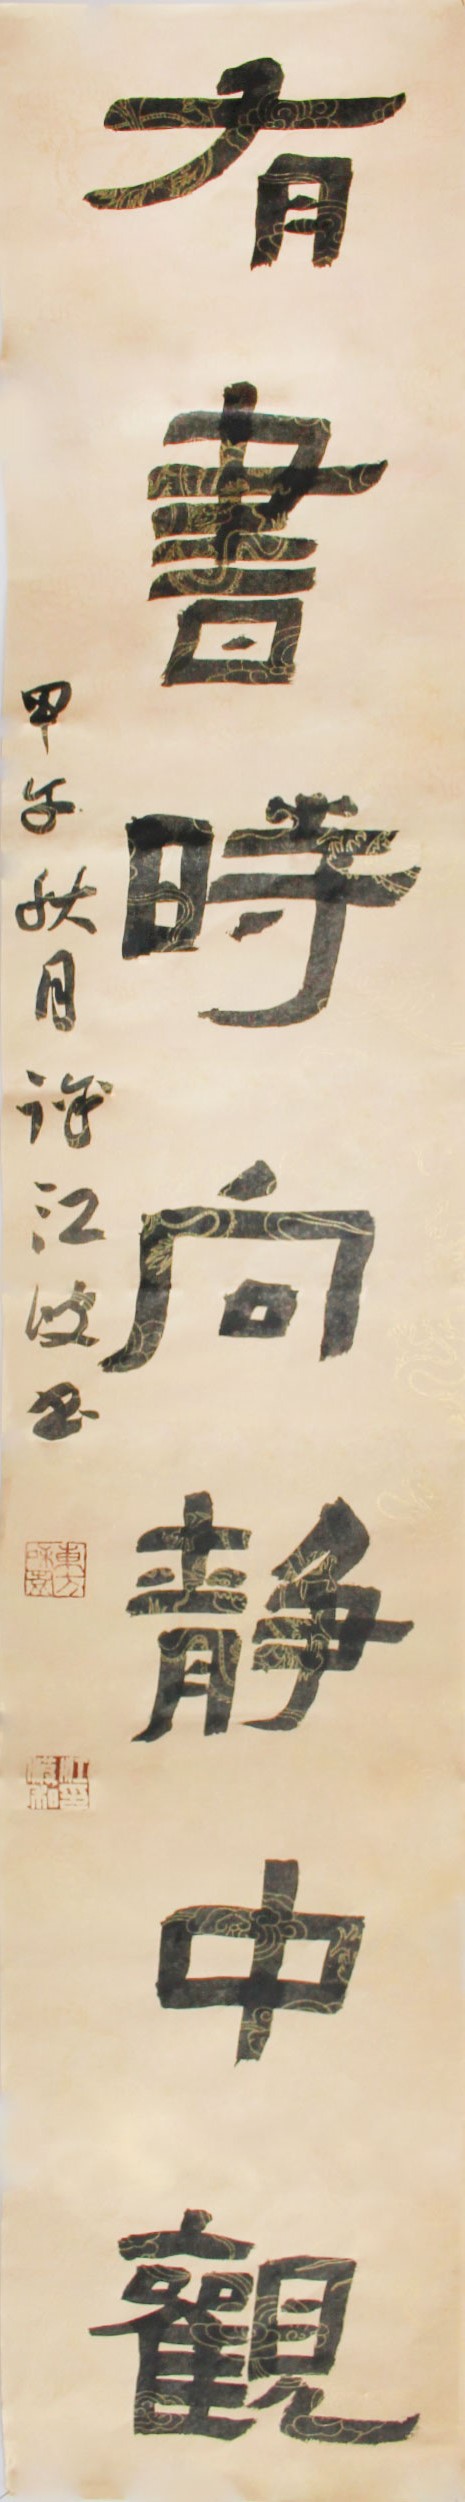 有書時向靜中觀
甲午秋月許江波书